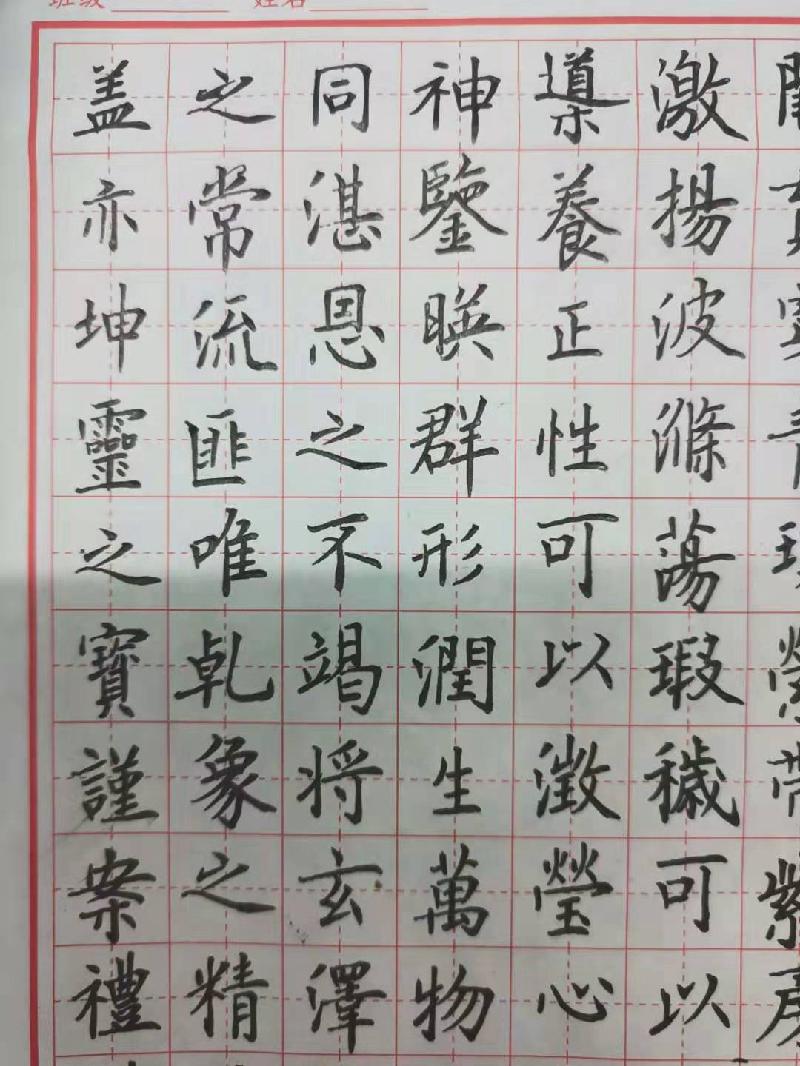 班级 姓名
激揚波滌蕩瑕穢可以
導養正性可以澂瑩心
神鑒暎群形潤生萬物
同湛恩之不竭将玄澤
之常流匪唯乹象之精
盖亦坤靈之寶謹案禮